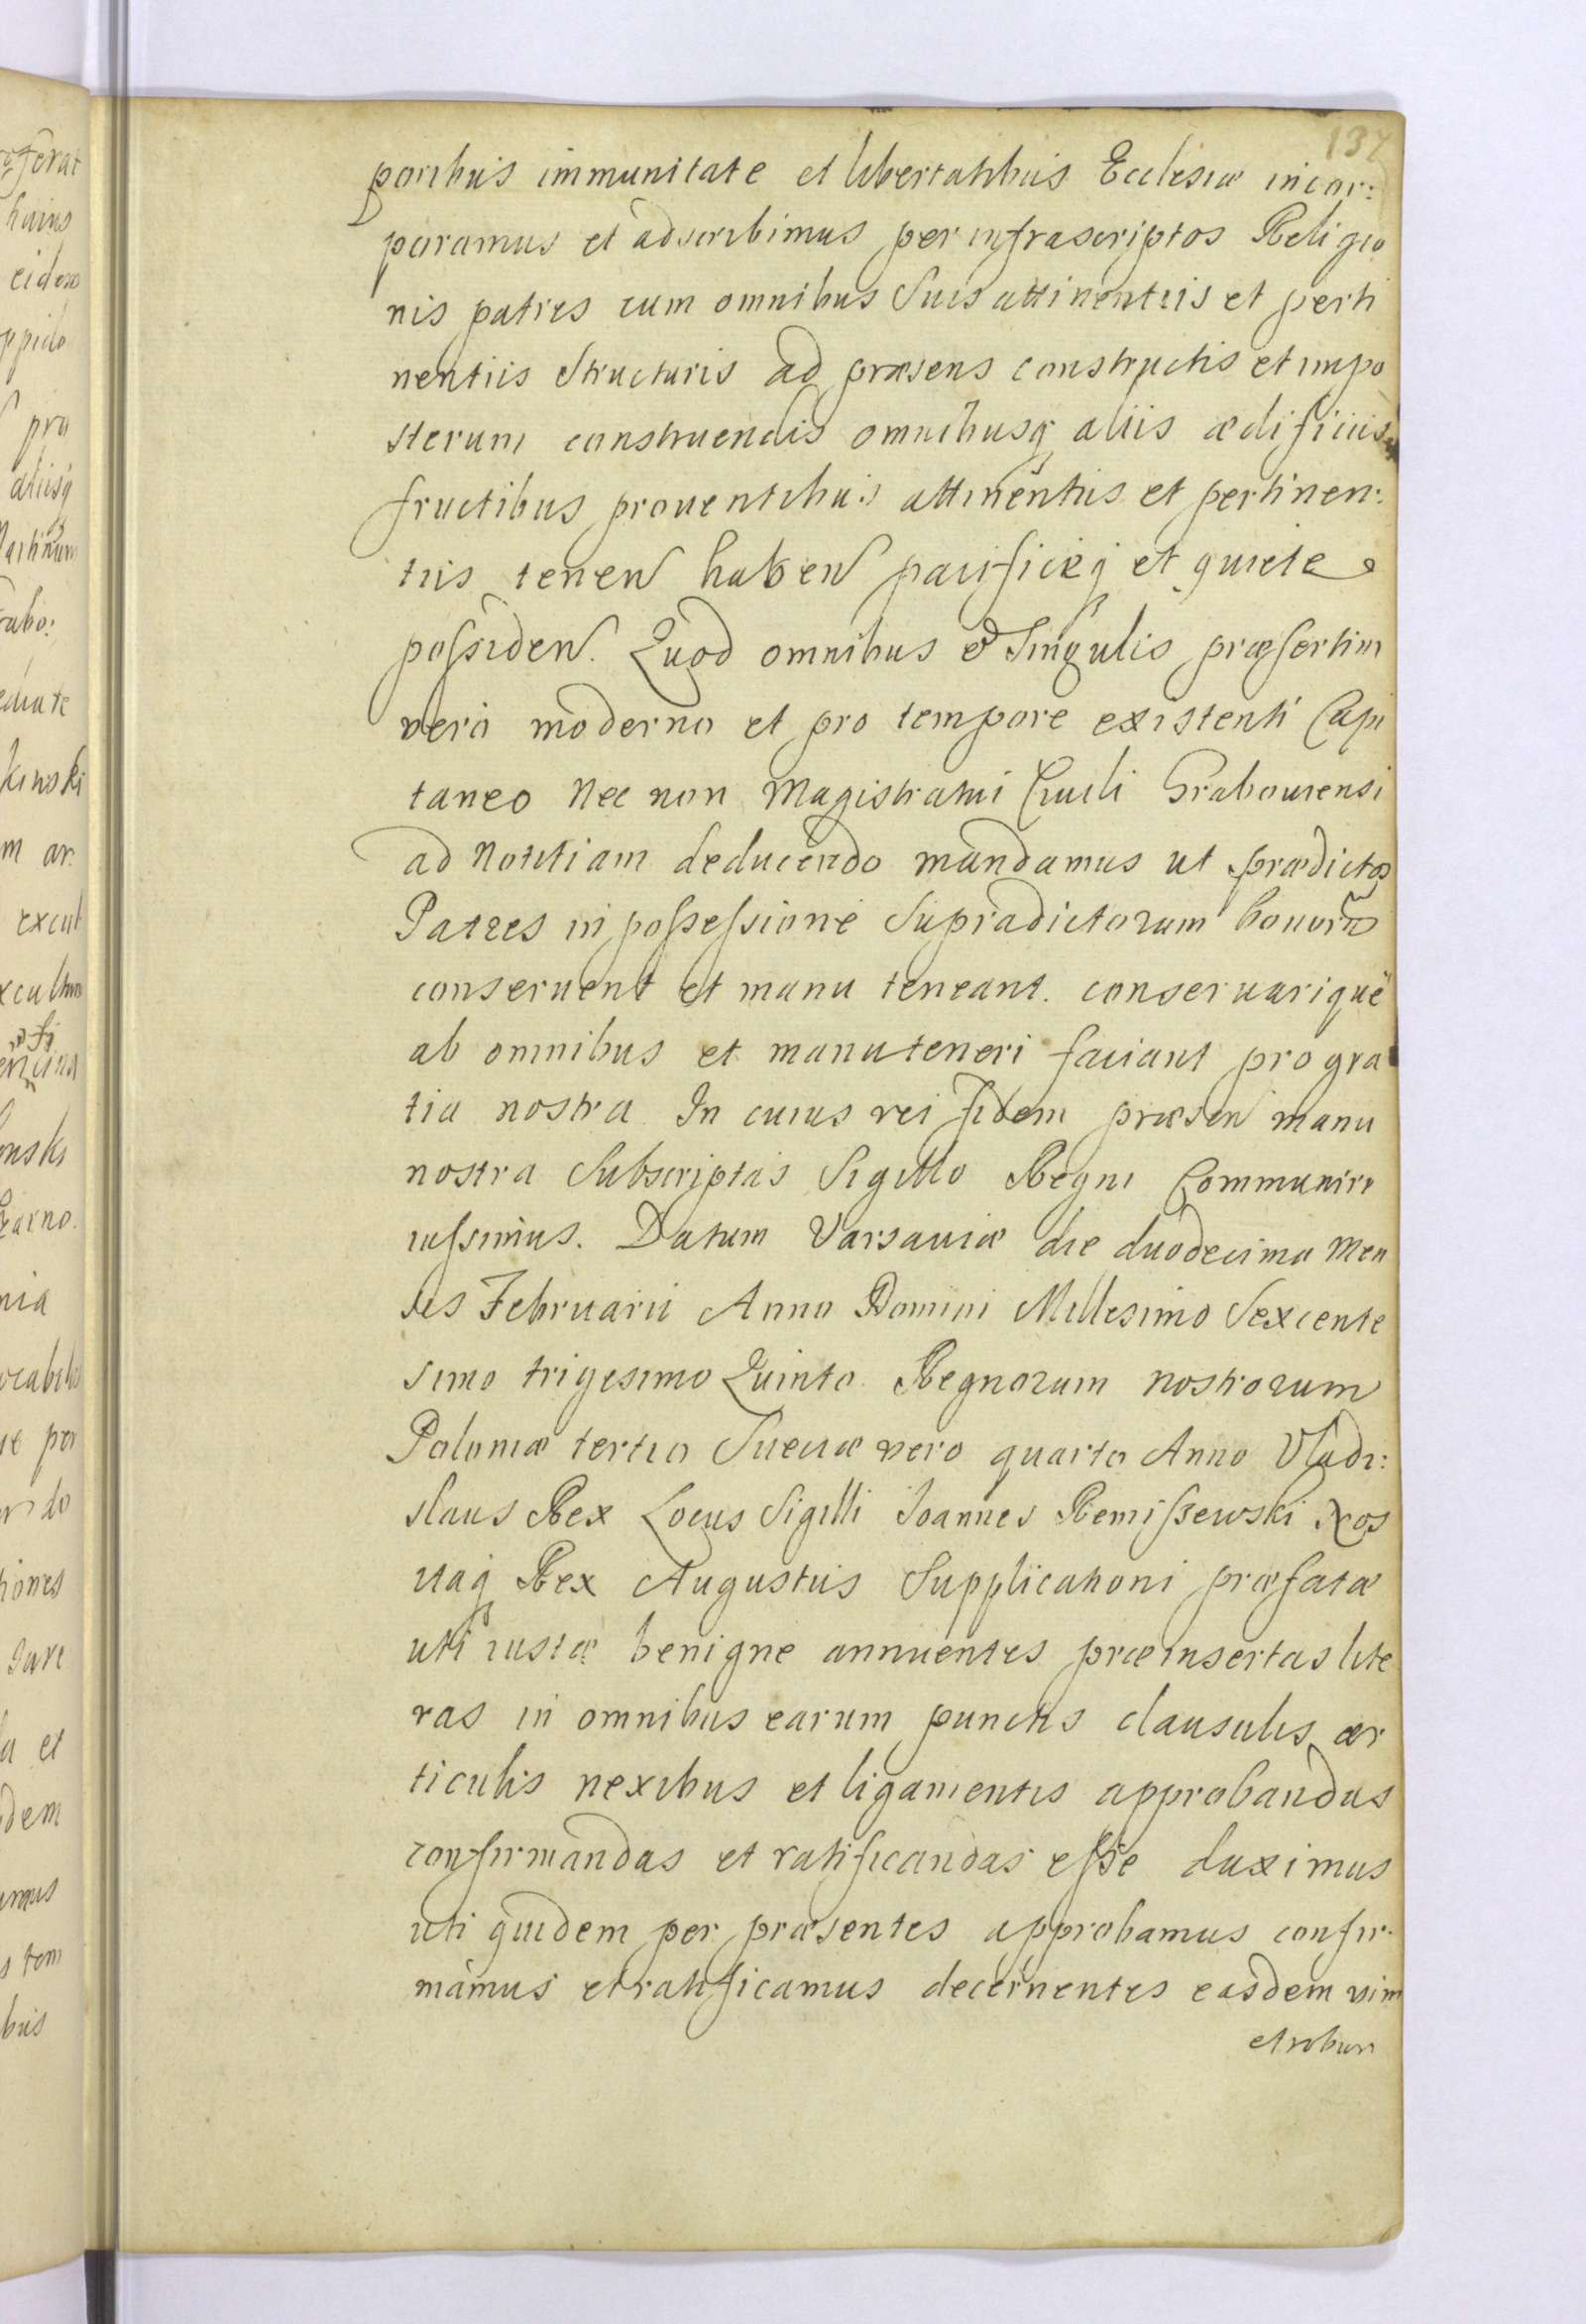 137
poribus immunitate et libertatibus Ecclesiæ incor:
poramus et adscribimus per infrascriptos Religio
nis patres cum omnibus Suis attinentiis et perti
nentiis Structuris ad præsens constructis et impo
sterum construendis omnibusq aliis ædificiis
fructibus prouentibus attinentiis et pertinen:
tiis tenen haben pacificeq et quiete
possiden. Quod omnibus et Singulis præsertim
vero moderno et pro tempore existenti Capi
taneo Nec non Magistratui Ciuili Grabouiensi
ad Notitiam deducendo mandamus ut prædictos
Patres in possessione Supradictorum bonorũ
conseruent et manu teneant. conseruarique
ab omnibus et manuteneri faciant pro gra
tia nostra In cuius rei fidem præsen manu
nostra Subscriptas Sigillo Regni Communiri
iussimus. Datum Varsauiæ die duodecima Men
sis Februarii Anno Domini Millesimo Sexcente
simo trigesimo Quinto Regnorum nostrorum
Poloniæ tertio Sueciæ vero quarto Anno Vladi:
slaus Rex Locus Sigilli Joannes Remissewski Nos
itaq Rex Augustus Supplicationi præfatæ
uti iustæ benigne annuentes præinsertas lite
ras in omnibus earum punctis clausulis ar
ticulis nexibus et ligamentis approbandas
confirmandas et ratificandas esse duximus
uti quidem per præsentes approbamus confir-
mamus et ratificamus decernentes easdem vim
et robur